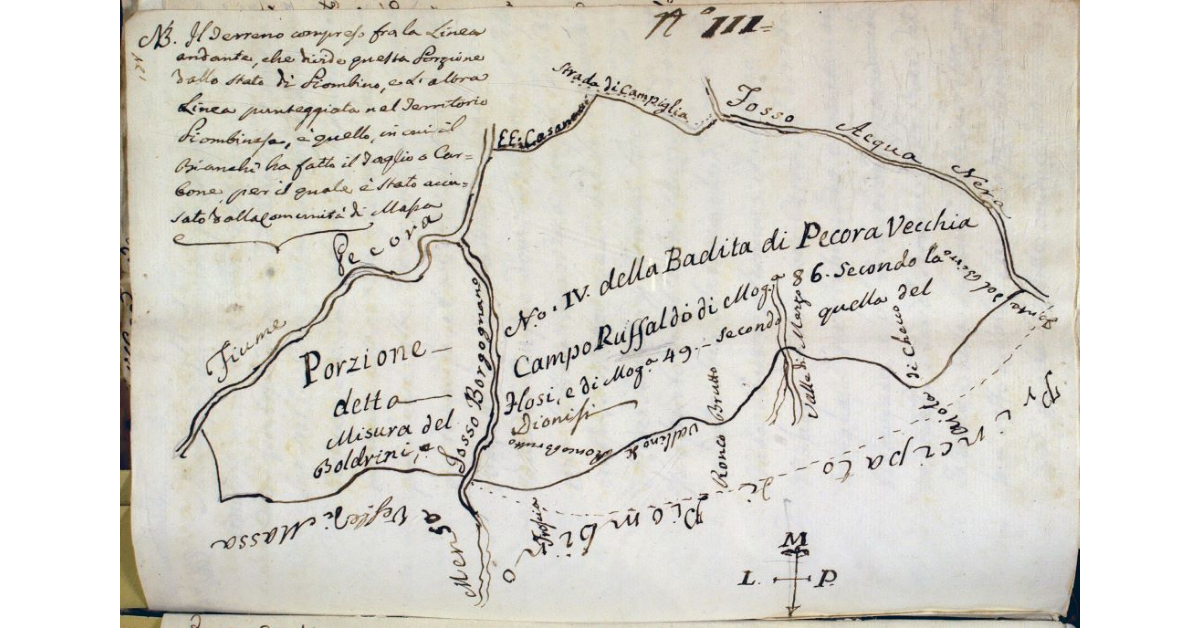 N.° III=
NB. Il Terreno compreso fra la Linea
andante, che divide questa Porzione
dallo Stato di Piombino, e l'altra
Linea punteggiata nel Territorio
Piombinese, è quello, in cui il
Bianchi ha fatto il Taglio a Car=
bone, per il quale è stato accu=
sato dalla Comunità di Massa
Strada di Campiglia
EE: Casanova
Fosso Acqua Nera
Fiume Pecora
No. IV. della Badita di Pecora Vecchia
Campo Ruffaldo di Mog.a 86. Secondo la
Flosi, e di Mog.a 49.- Secondo quella del
Dionisi
Porzione
detta
Misura del
Boldrini, e
Fosso Borgognano
Vallino di Ronco Brutto
Ronco Brutto
Valle di Marzo
di Checco
Mensa Vesc.le di Massa
Principato di Piombino
M
L. P.